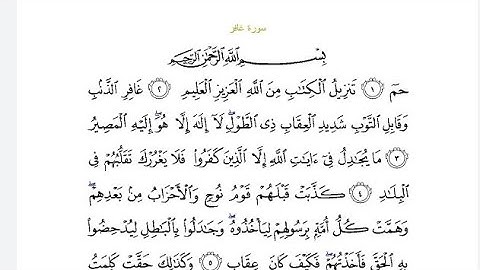 سورة غافر
بِسْمِ ٱللَّهِ ٱلرَّحْمَٰنِ ٱلرَّحِيمِ
حمٓ ١ تَنزِيلُ ٱلْكِتَٰبِ مِنَ ٱللَّهِ ٱلْعَزِيزِ ٱلْعَلِيمِ ٢ غَافِرِ ٱلذَّنۢبِ
وَقَابِلِ ٱلتَّوْبِ شَدِيدِ ٱلْعِقَابِ ذِى ٱلطَّوْلِ ۖ لَآ إِلَٰهَ إِلَّا هُوَ ۖ إِلَيْهِ ٱلْمَصِيرُ
٣ مَا يُجَٰدِلُ فِىٓ ءَايَٰتِ ٱللَّهِ إِلَّا ٱلَّذِينَ كَفَرُوا۟ فَلَا يَغْرُرْكَ تَقَلُّبُهُمْ فِى
ٱلْبِلَٰدِ ٤ كَذَّبَتْ قَبْلَهُمْ قَوْمُ نُوحٍ وَٱلْأَحْزَابُ مِنۢ بَعْدِهِمْ ۖ
وَهَمَّتْ كُلُّ أُمَّةٍۭ بِرَسُولِهِمْ لِيَأْخُذُوهُ ۖ وَجَٰدَلُوا۟ بِٱلْبَٰطِلِ لِيُدْحِضُوا۟
بِهِ ٱلْحَقَّ فَأَخَذْتُهُمْ ۖ فَكَيْفَ كَانَ عِقَابِ ٥ وَكَذَٰلِكَ حَقَّتْ كَلِمَتُ